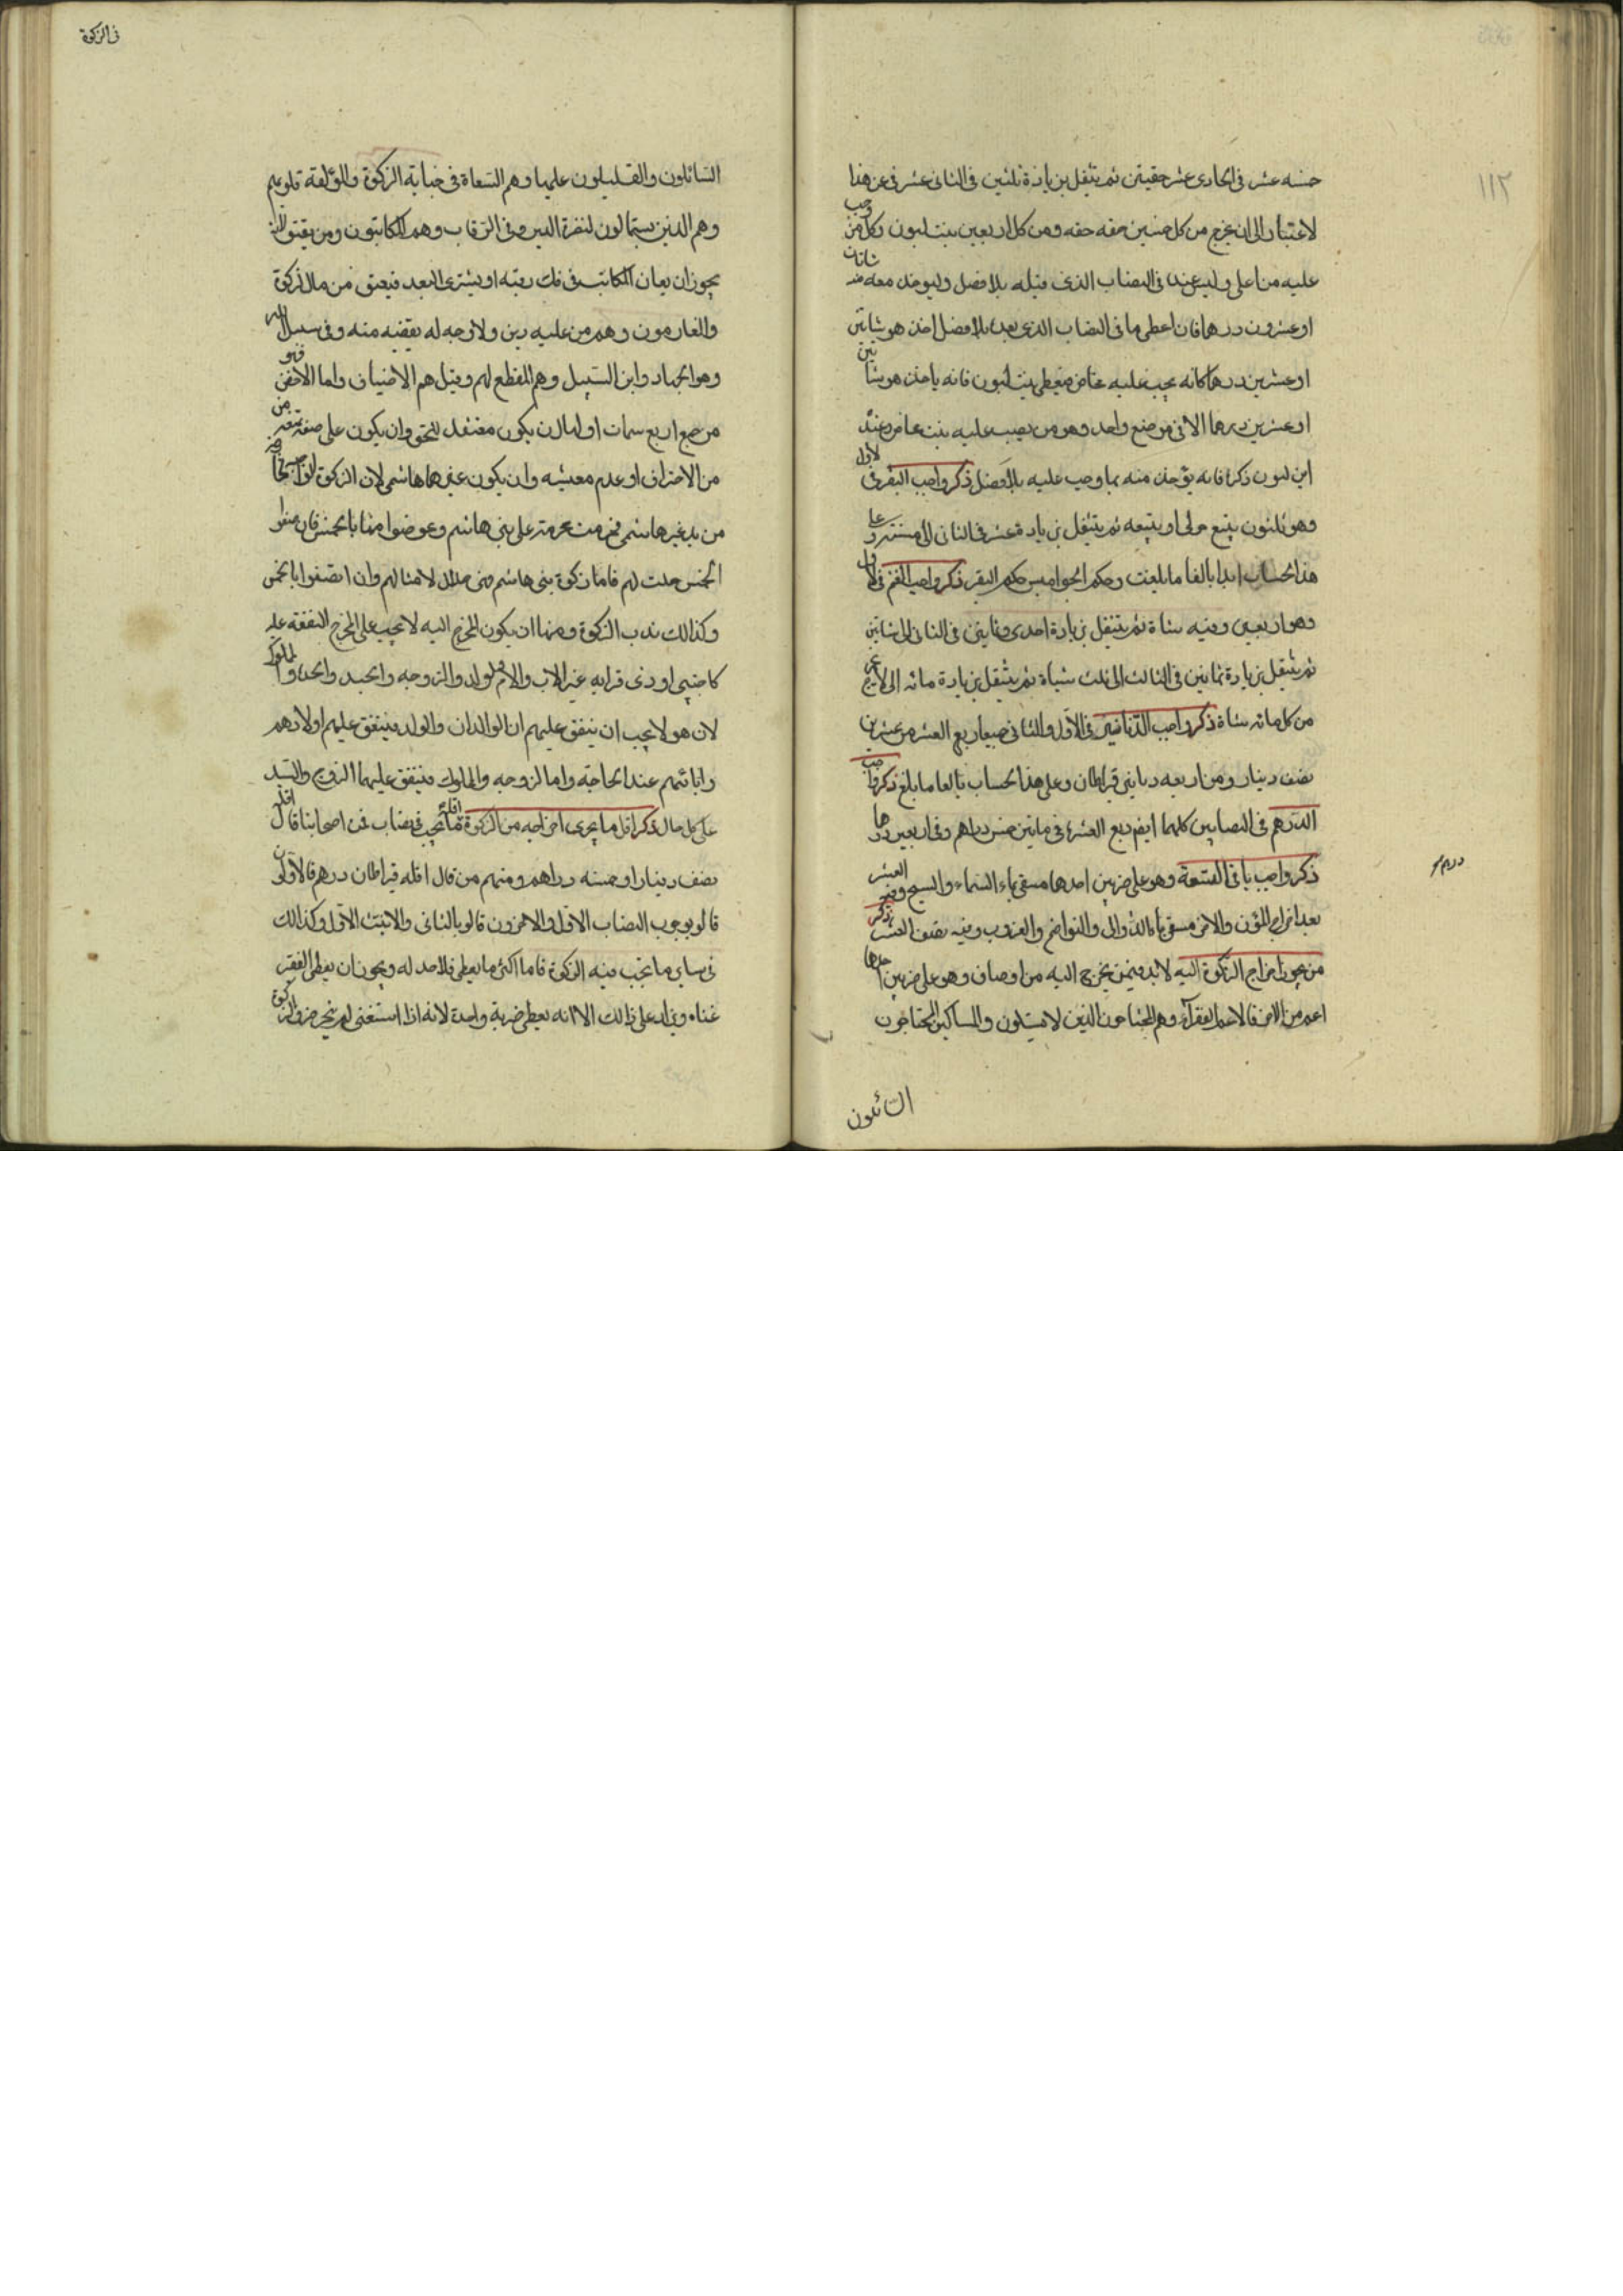 ١١٢
خمسه عشر فى الحادى عشر حقيتن ثم يتنقل بزيادة ثلثين فى الثانى عشر فى عن هذا
لاعتبار الى ان يخرج من كل خمسين حقه حقه ومن كل اربعين بنت لبون وكل من وجب
عليه من اعلى وليس عنده فى النصاب الذى قبله بلا فضل وليوخذ معه شاتان
او عشرون درهما فان اعطى ما فى النصاب الذى بعده بلا فضل اخذ هو شاتين
او عشرين درهما كانه يجب عليه مخاض فيعطى بنت لبون فانه ياخذ هو شاتين
او عشرين درهما الا فى موضع واحد وهو من يجب عليه بنت مخاض وعنده
ابن لبون ذكرا فانه يؤخذ منه بما وجب عليه بلا فضل ذكر واجب البقر فى الاول
وهو ثلثون يتبع حولى او يتيعه ثم يتنقل بزيادة عشر فى الثانى الى مسنة وعلى
هذا الحساب ابدا بالغا ما بلغت وحكم الجواميس حكم البقر ذكر واجب الغنم فى الاول
وهو اربعين وفيه شاة ثم يتنقل بزيادة احدى وثمانين فى الثانى الى شاتين
ثم يتنقل بزيادة ثمانين فى الثالث الى ثلث شياة ثم يتنقل بزيادة مائه الى الاخراج
من كل مائه شاة ذكر واجب الدنانير فى الاول والثانى جميعا ربع العشر من عشرين
نصف دينار ومن اربعه دنانير قيراطان وعلى هذا الحساب بالغا ما بلغ ذكر واجب
الدرهم فى النصابين كليهما ايضم ربع العشر فى مائتين خمس دراهم وفى اربعين درهما
درهم
ذكر واجب باقى التسعة وهو على ضربين احدها مسقى بماء السماء والسيح وفيه العشر
بعد اخراج المؤن والاخر مسقى بماء الدوالى والنواضح والغروب وفيه نصف العشر ذكر
من يجوز اخراج الزكوة اليه لابد فيمن يخرج اليه من اوصاف وهو على ضربين احدها
اعم من الاخر فالاعم الفقرآء وهم المحتاجون الذين لا يسئلون والمساكين المحتاجون
السائلون
فى الزكوة
السائلون والعاملون عليها وهم السعاة فى جباية الزكوة والمؤلفة قلوبهم
وهم الذين يستمالون لنصرة الدين وفى الرقاب وهم المكاتبون ومن يعتق
يجوز ان يعان المكاتب فى فك رقبته او يشترى العبد فيعتق من مال الزكوة
والغارمون وهم من عليه دين ولا وجه له يقضيه منه وفى سبيل الله
وهو الجهاد وابن السبيل وهم المنقطع لهم وقيل هم الاضياف واما الاخص فهو
من جمع اربع سمات اولها ان يكون معتقد للحق وان يكون على صفة تمنعه من
من الاحتراف او عدم معيشه وان يكون غيرهما هاشمى لان الزكوة الواجبة
من يد غير هاشمى فحرمت محرمة على بنى هاشم وعوضوا منها بالخمس فان منعوا
الخمس حلت لهم فاما زكوة بنى هاشم فهى حلال لامثالهم وان اتصفوا بالخمس
وكذالك ندب الزكوة ومنها ان يكون المخرج اليه لا يجب على المخرج النفقه عليه
كاجنبى او ذى قرابه غير الاب والام والولد والزوجه والجد والجدة والمملوك
لان هو لا يجب ان ينفق عليهم ان الوالدان والولد فينفق عليهم اولادهم
وابائهم عند الحاجة واما الزوجه والملوك فينفق عليهما الزوج والسيد
على كل حال ذكر اقل ما يجزى اخراجه من الزكوة اقله ما يجب فى نصاب فمن اصحابنا قال اقله
نصف دينار او خمسه دراهم ومنهم من قال اقله قيراطان درهم فالاولون
قالو بوجوب النصاب الاول والاخرون قالو بالثانى والاثبت الاول وكذالك
فى ساير ما تجب فيه الزكوة فاما اكثر ما يعطى فلا حد له ويجوز ان يعطى الفقير
غناه ويزاد على ذالك الا انه يعطى ضربة واحدة لانه اذا استغنى لم يخرجز والزكوة